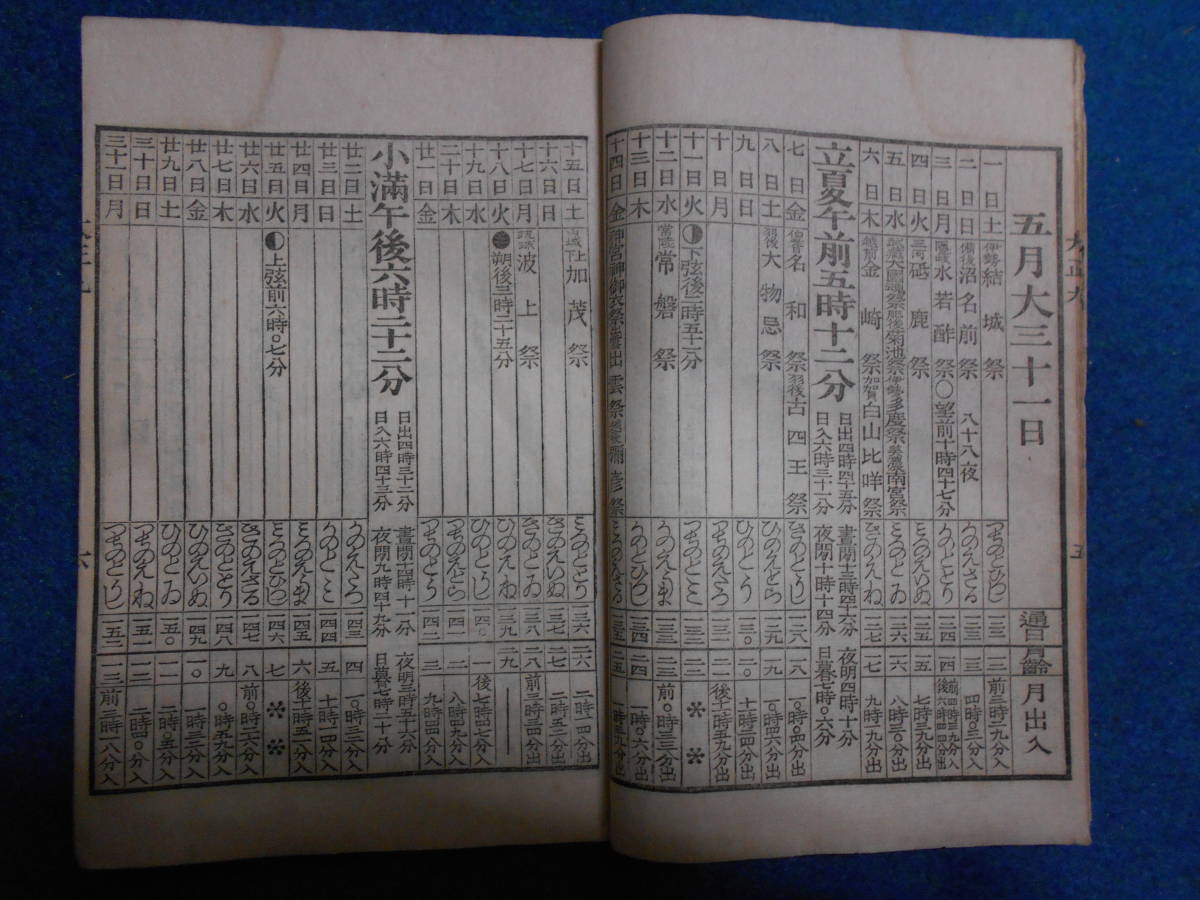 大正九
五
五月大三十一日
通日
月齢
月出入
一日土 伊勢結城祭 つちのとひつじ 一二二 一二 前三時二九分入
二日日 備後沼名前祭 八十八夜 かのえさる 一二三 一三 四時〇三分入
三日月 隠岐水若酢祭 ○望前十時四十七分 かのととり 一二四 一四 前四時三九分入 後六時四四分出
四日火 三河砥鹿祭 一二五 一五 七時三九分出
五日水 武蔵大國魂祭 肥後菊池祭 伊勢多度祭 美濃南宮祭 一二六 一六 八時三〇分出
六日木 越前金崎祭 加賀白山比咩祭 きのえね 一二七 一七 九時一九分出
立夏午前五時十二分 日出四時四十五分 日入六時三十一分 晝間十三時四十六分 夜間十時十四分 夜明四時十分 日暮七時〇六分
七日金 伯耆名和祭 羽後古四王祭 きのとうし 一二八 一八 一〇時〇四分出
八日土 羽後大物忌祭 ひのえとら 一二九 一九 一〇時四六分出
九日日 ひのとう 一三〇 二〇 十一時二四分出
十日月 つちのえたつ 一三一 二一 後十一時五九分出
十一日火 下弦後二時五十一分 つちのとみ 一三二 二二 ＊＊
十二日水 常陸常磐祭 かのえうま 一三三 二三 前〇時三三分出
十三日木 かのとひつじ 一三四 二四 一時〇六分出
十四日金 神宮神御衣祭 出雲祭 彌彦祭 みづのえさる 一三五 二五 一時三八分出
十五日土 山城下上加茂祭 みづのととり 一三六 二六 二時一四分出
十六日日 きのえいぬ 一三七 二七 二時五二分出
十七日月 琉球波上祭 きのとゐ 一三八 二八 前三時三四分出
十八日火 朔後三時二十五分 ひのえね 一三九 二九
十九日水 ひのとうし 一四〇 一 後七時四七分入
二十日木 つちのえとら 一四一 二 八時四二分入
廿一日金 つちのとう 一四二 三 九時三一分入
小満午後六時二十二分 日出四時三十二分 日入六時四十三分 晝間十四時十一分 夜間九時四十九分 夜明三時五十六分 日暮七時二十分
廿二日土 かのえたつ 一四三 四 一〇時一三分入
廿三日日 かのとみ 一四四 五 十時五一分入
廿四日月 みづのえうま 一四五 六 後十一時二五分入
廿五日火 上弦前六時〇七分 みづのとひつじ 一四六 七 ＊＊
廿六日水 きのえさる 一四七 八 前〇時二六分入
廿七日木 きのととり 一四八 九 〇時五九分入
廿八日金 ひのえいぬ 一四九 一〇 一時三一分入
廿九日土 ひのとゐ 一五〇 一一 二時〇五分入
三十日日 つちのえね 一五一 一二 二時四〇分入
三十一日月 つちのとうし 一五二 一三 前三時一八分入
六